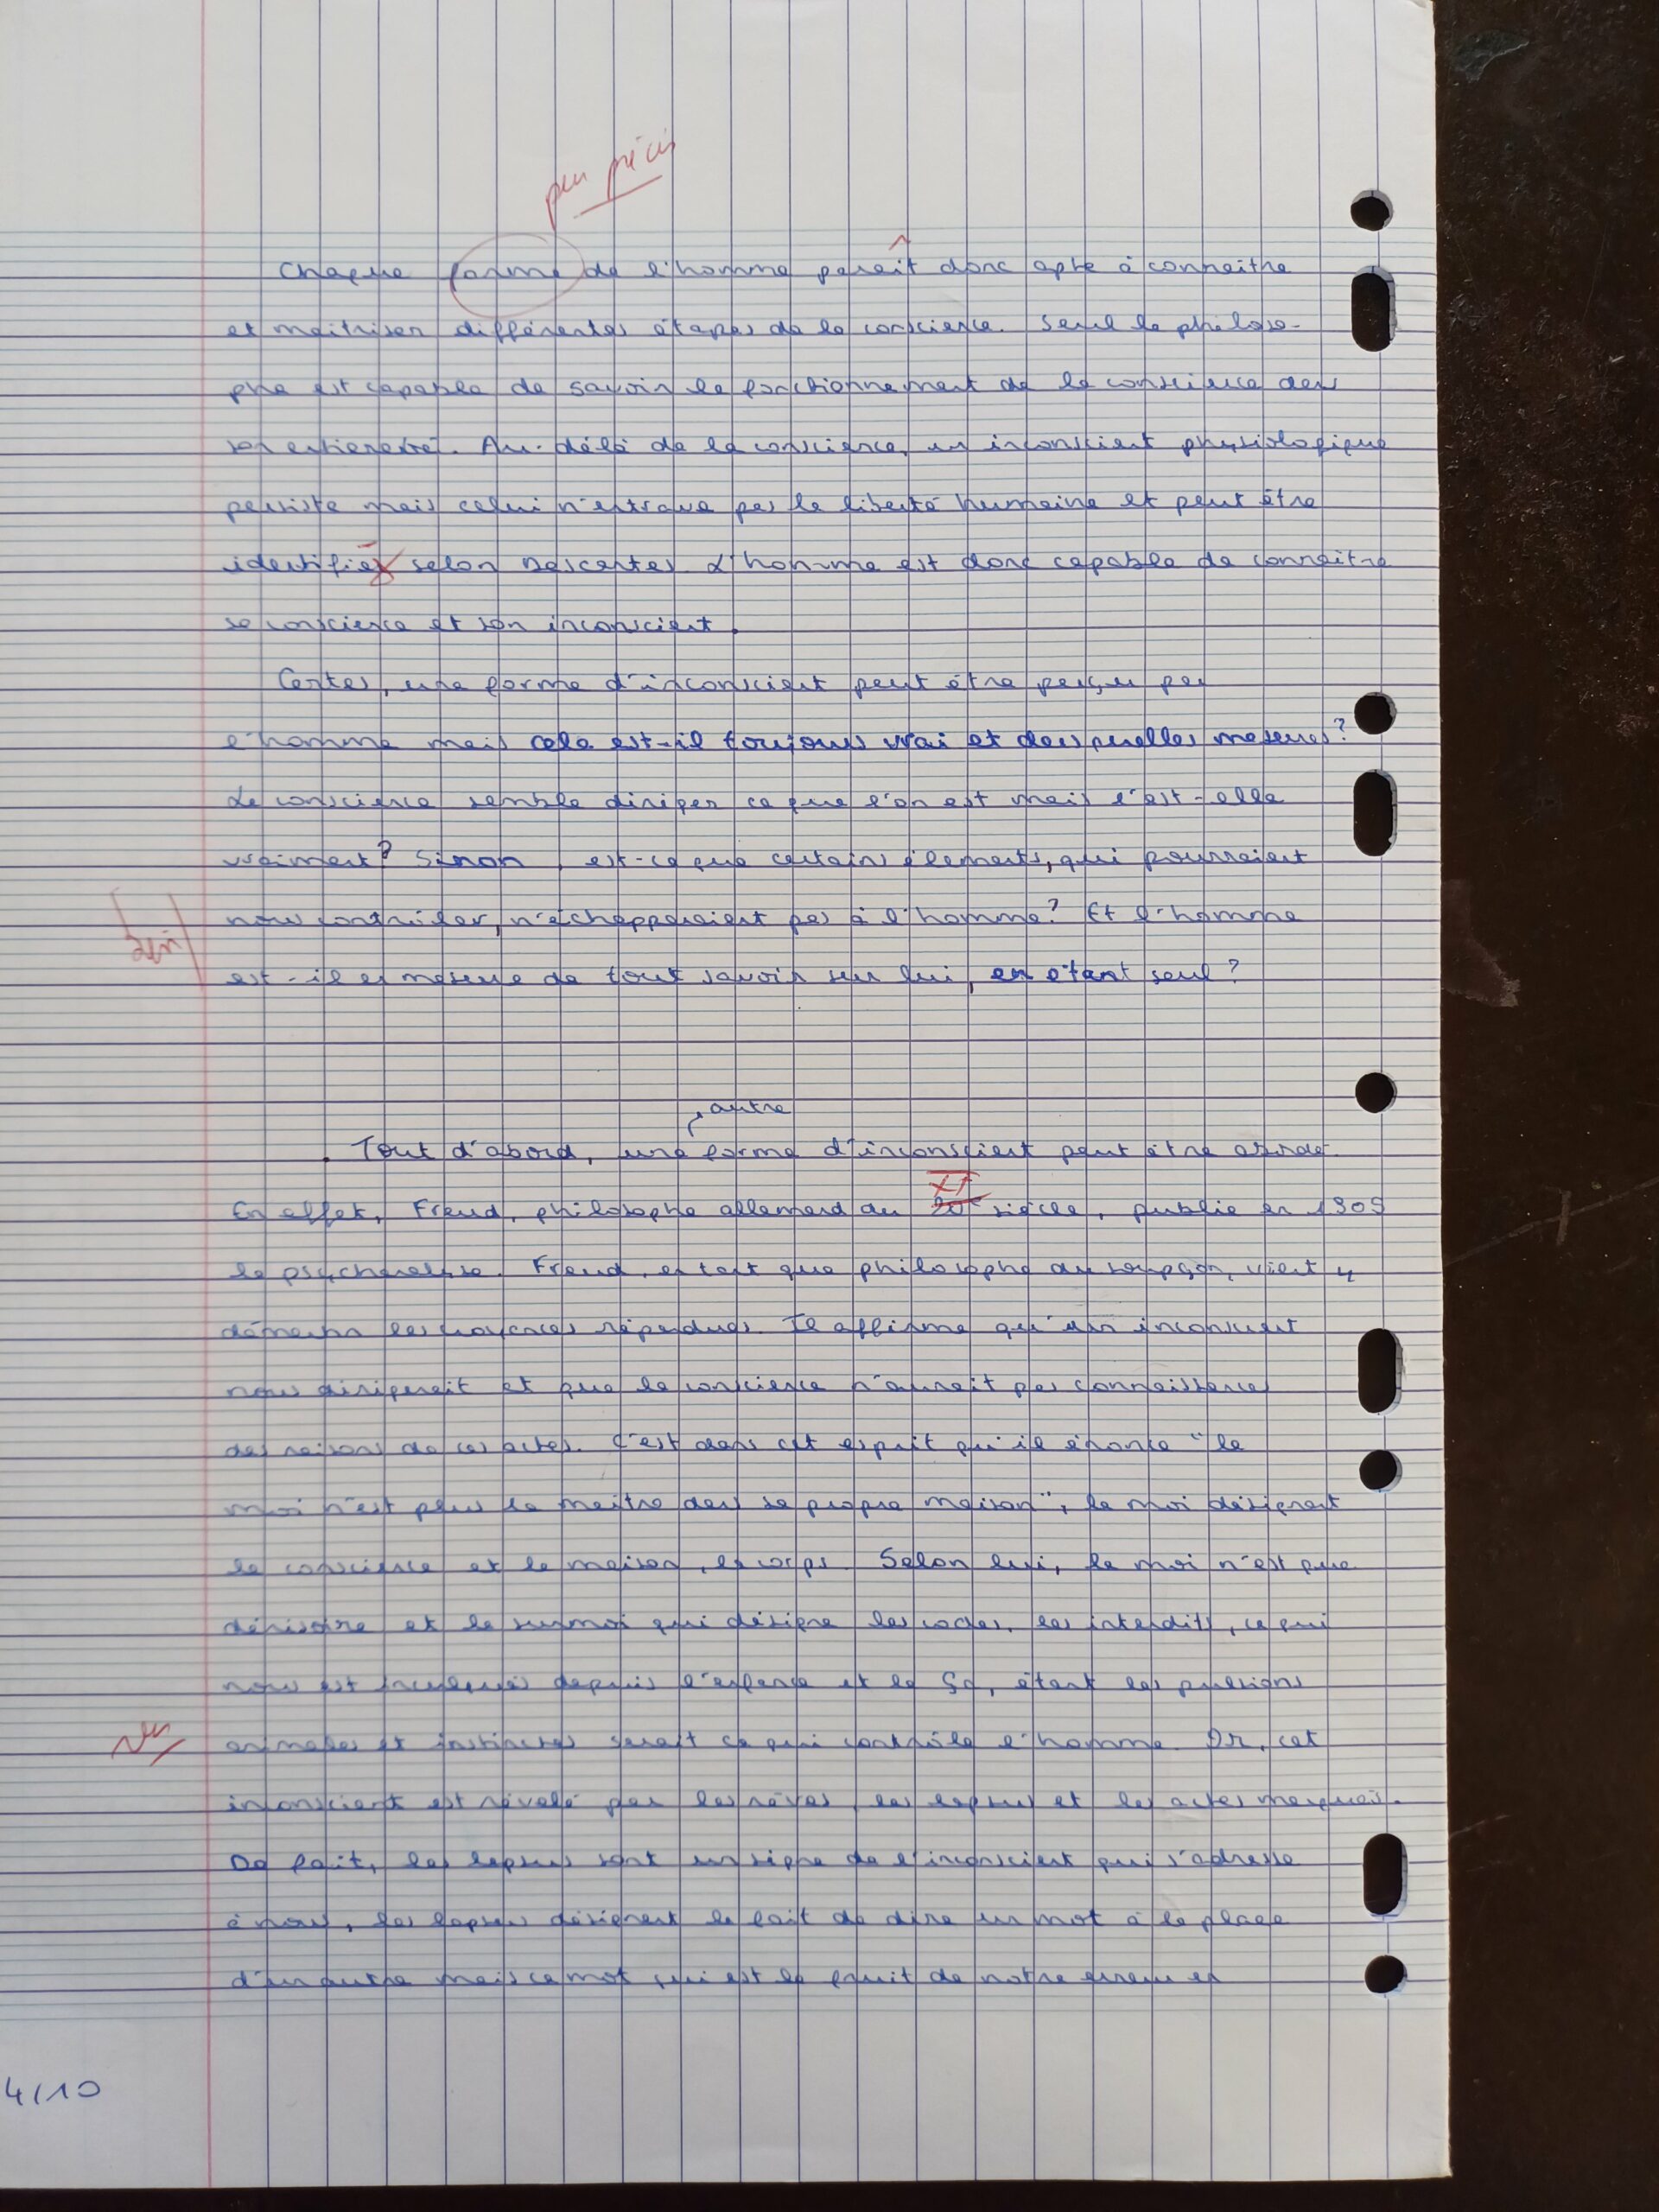 peu précis
Chaque forme de l'homme paraît donc apte à connaitre
et maitriser différentes étapes de la conscience. Seul le philoso-
phe est capable de savoir le fonctionnement de la conscience dans
son entiereté. Au-délà de la conscience, un inconscient physiologique
persiste mais celui n'entrave pas la liberté humaine et peut être
identifié selon Descartes. L'homme est donc capable de connaitre
sa conscience et son inconscient.
Certes, une forme d'inconscient peut être perçu par
l'homme mais cela est-il toujours vrai et dans quelles mesures?
La conscience semble diriger ce que l'on est mais l'est-elle
vraiment? Sinon, est-ce que certains élements, qui pourraient
nous contrôler, n'échapperaient pas à l'homme? Et l'homme
est-il en mesure de tout savoir sur lui, en étant seul?
autre
Tout d'abord, une forme d'inconscient peut être abordé.
XX
En effet, Freud, philosophe allemand du 20e siècle, publie en 1909
la psychanalyse. Freud, en tant que philosophe du soupçon, vient y
démentir les croyances répandues. Il affirme qu'un inconscient
nous dirigerait et que la conscience n'aurait pas connaissances
des raisons de ces actes. C'est dans cet esprit qu'il énonce "le
moi n'est plus le maitre dans sa propre maison", le moi désignant
la conscience et la maison, le corps. Selon lui, le moi n'est que
dérisoire et le surmoi qui désigne les codes, les interdits, ce qui
nous est inculqués depuis l'enfance et le ça, étant les pulsions
animales et instinctes serait ce qui contrôle l'homme. Or, cet
inconscient est révélé par les rêves, les lapsus et les actes manqués.
De fait, les lapsus sont un signe de l'inconscient qui s'adresse
à nous, les lapsus désignent le fait de dire un mot à la place
d'un autre mais ce mot qui est le fruit de notre erreur en
4/10